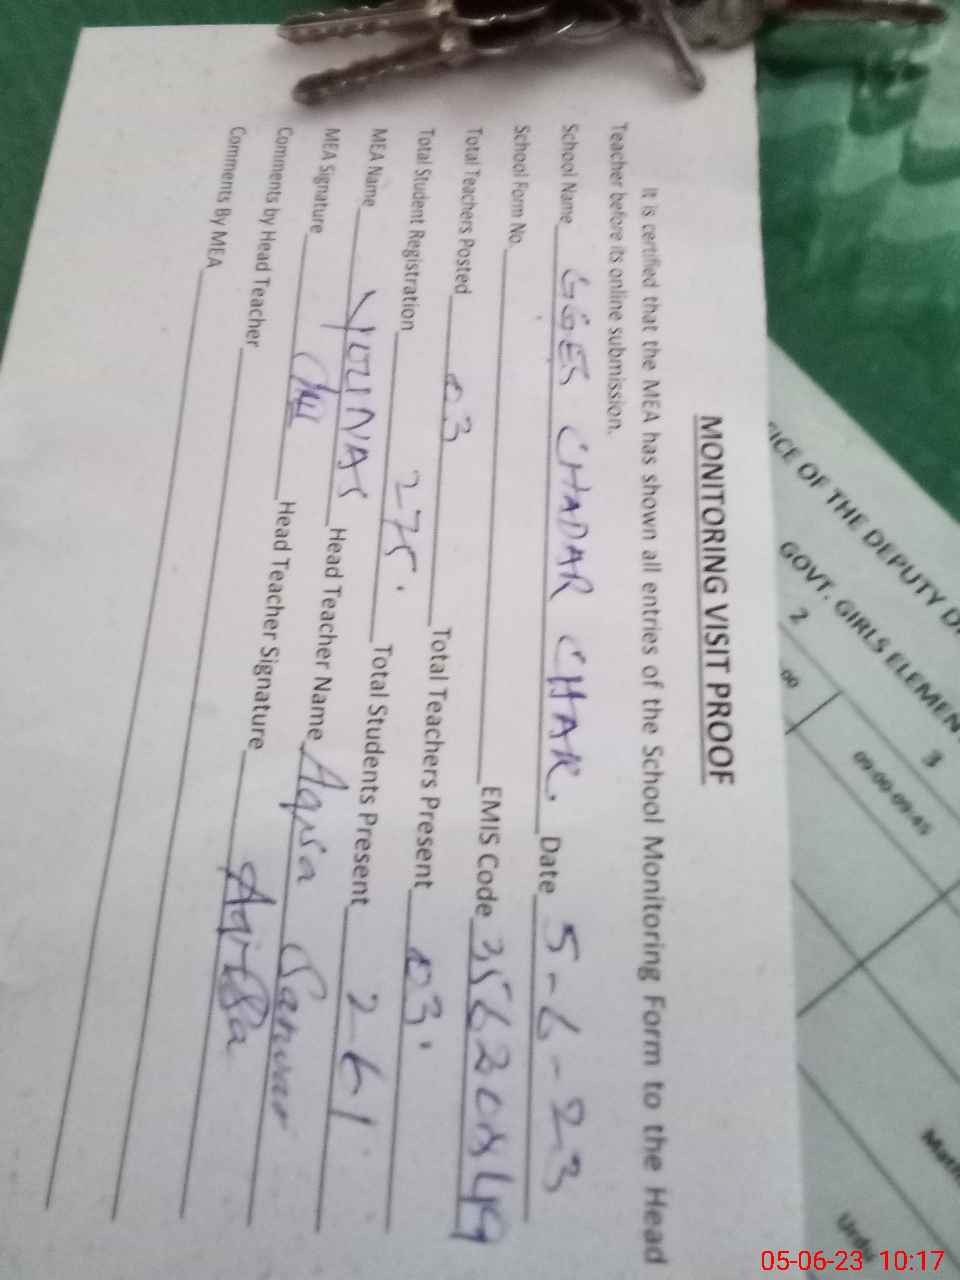 MONITORING VISIT PROOF
It is certified that the MEA has shown all entries of the School Monitoring Form to the Head
Teacher before its online submission.
School Name GGES CHADAR CHAR. Date 5-6-23
School Form No. EMIS Code
Total Teachers Posted 03 Total Teachers Present 03
Total Student Registration 275 Total Students Present 261
MEA Name YOUNAS Head Teacher Name Aqsa Sarwar
MEA Signature Head Teacher Signature
Comments by Head Teacher
Comments By MEA
OF THE DEPUTY
GOVT. GIRLS
2 3
09:00-09:45
Urdu
05-06-23 10:17